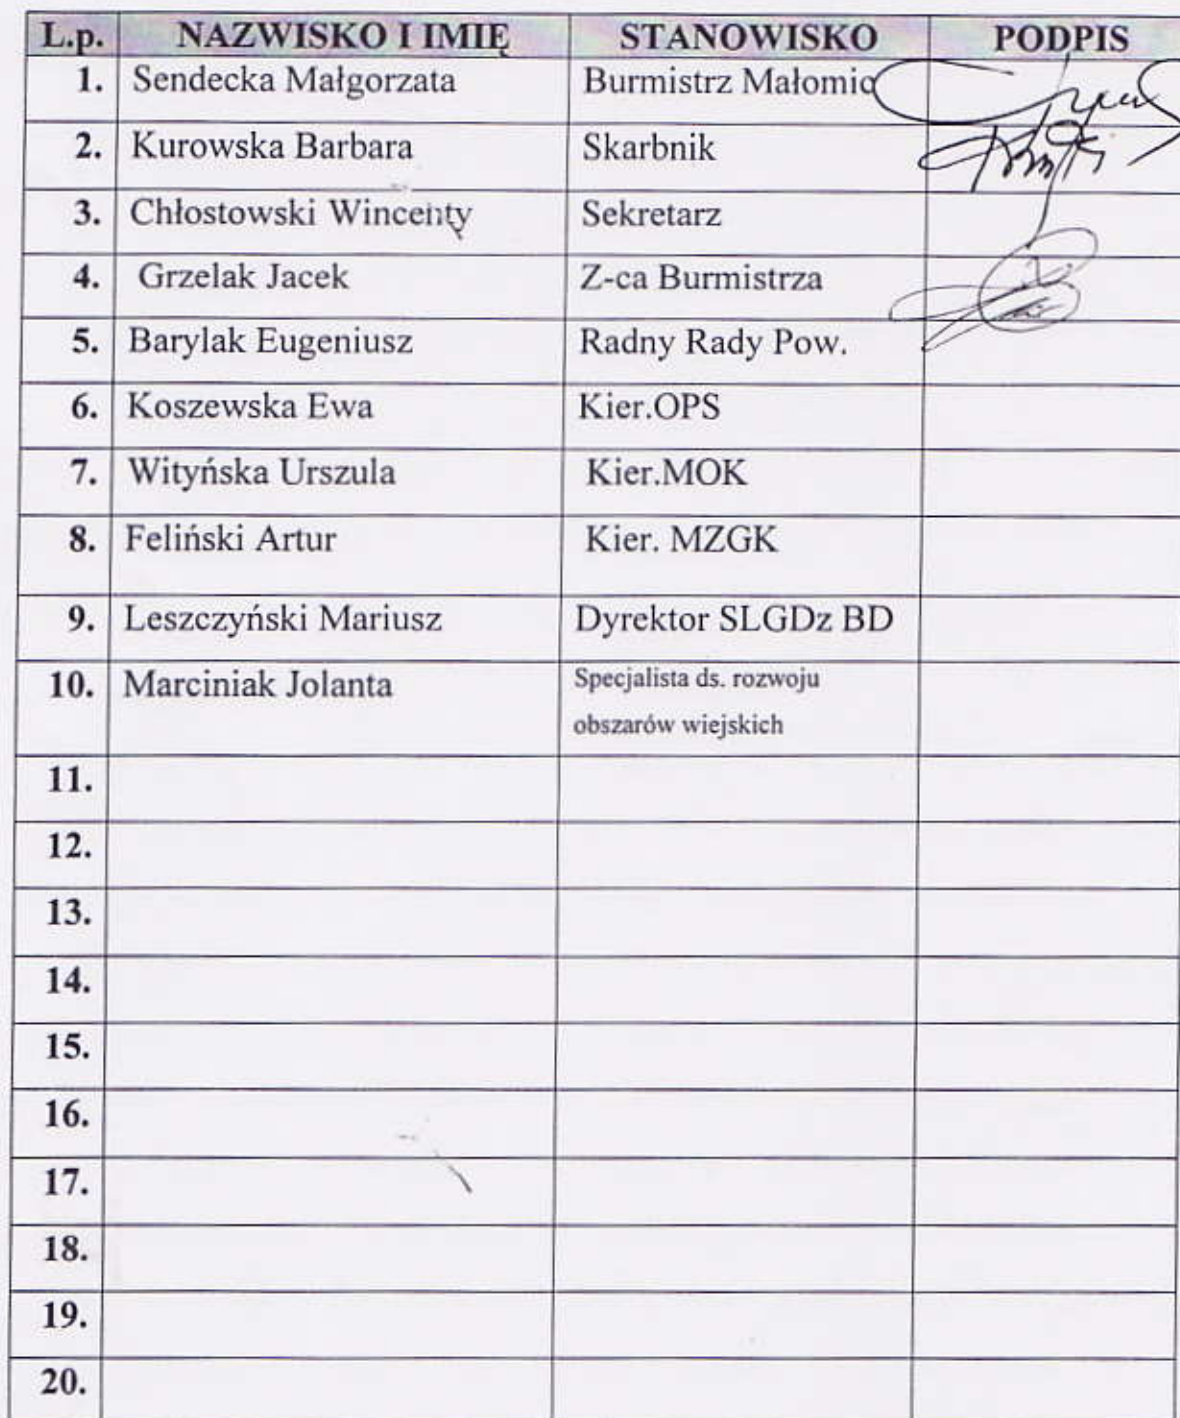 L.p. NAZWISKO I IMIĘ STANOWISKO PODPIS
1. Sendecka Małgorzata Burmistrz Małomic
2. Kurowska Barbara Skarbnik
3. Chłostowski Wincenty Sekretarz
4. Grzelak Jacek Z-ca Burmistrza
5. Barylak Eugeniusz Radny Rady Pow.
6. Koszewska Ewa Kier.OPS
7. Wityńska Urszula Kier.MOK
8. Feliński Artur Kier. MZGK
9. Leszczyński Mariusz Dyrektor SLGDz BD
10. Marciniak Jolanta Specjalista ds. rozwoju
obszarów wiejskich
11.
12.
13.
14.
15.
16.
17.
18.
19.
20.